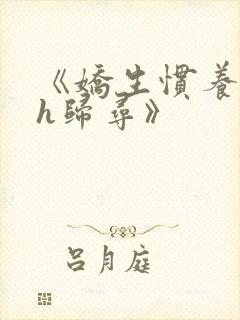 《嬌生慣養
h歸尋》
呂月庭